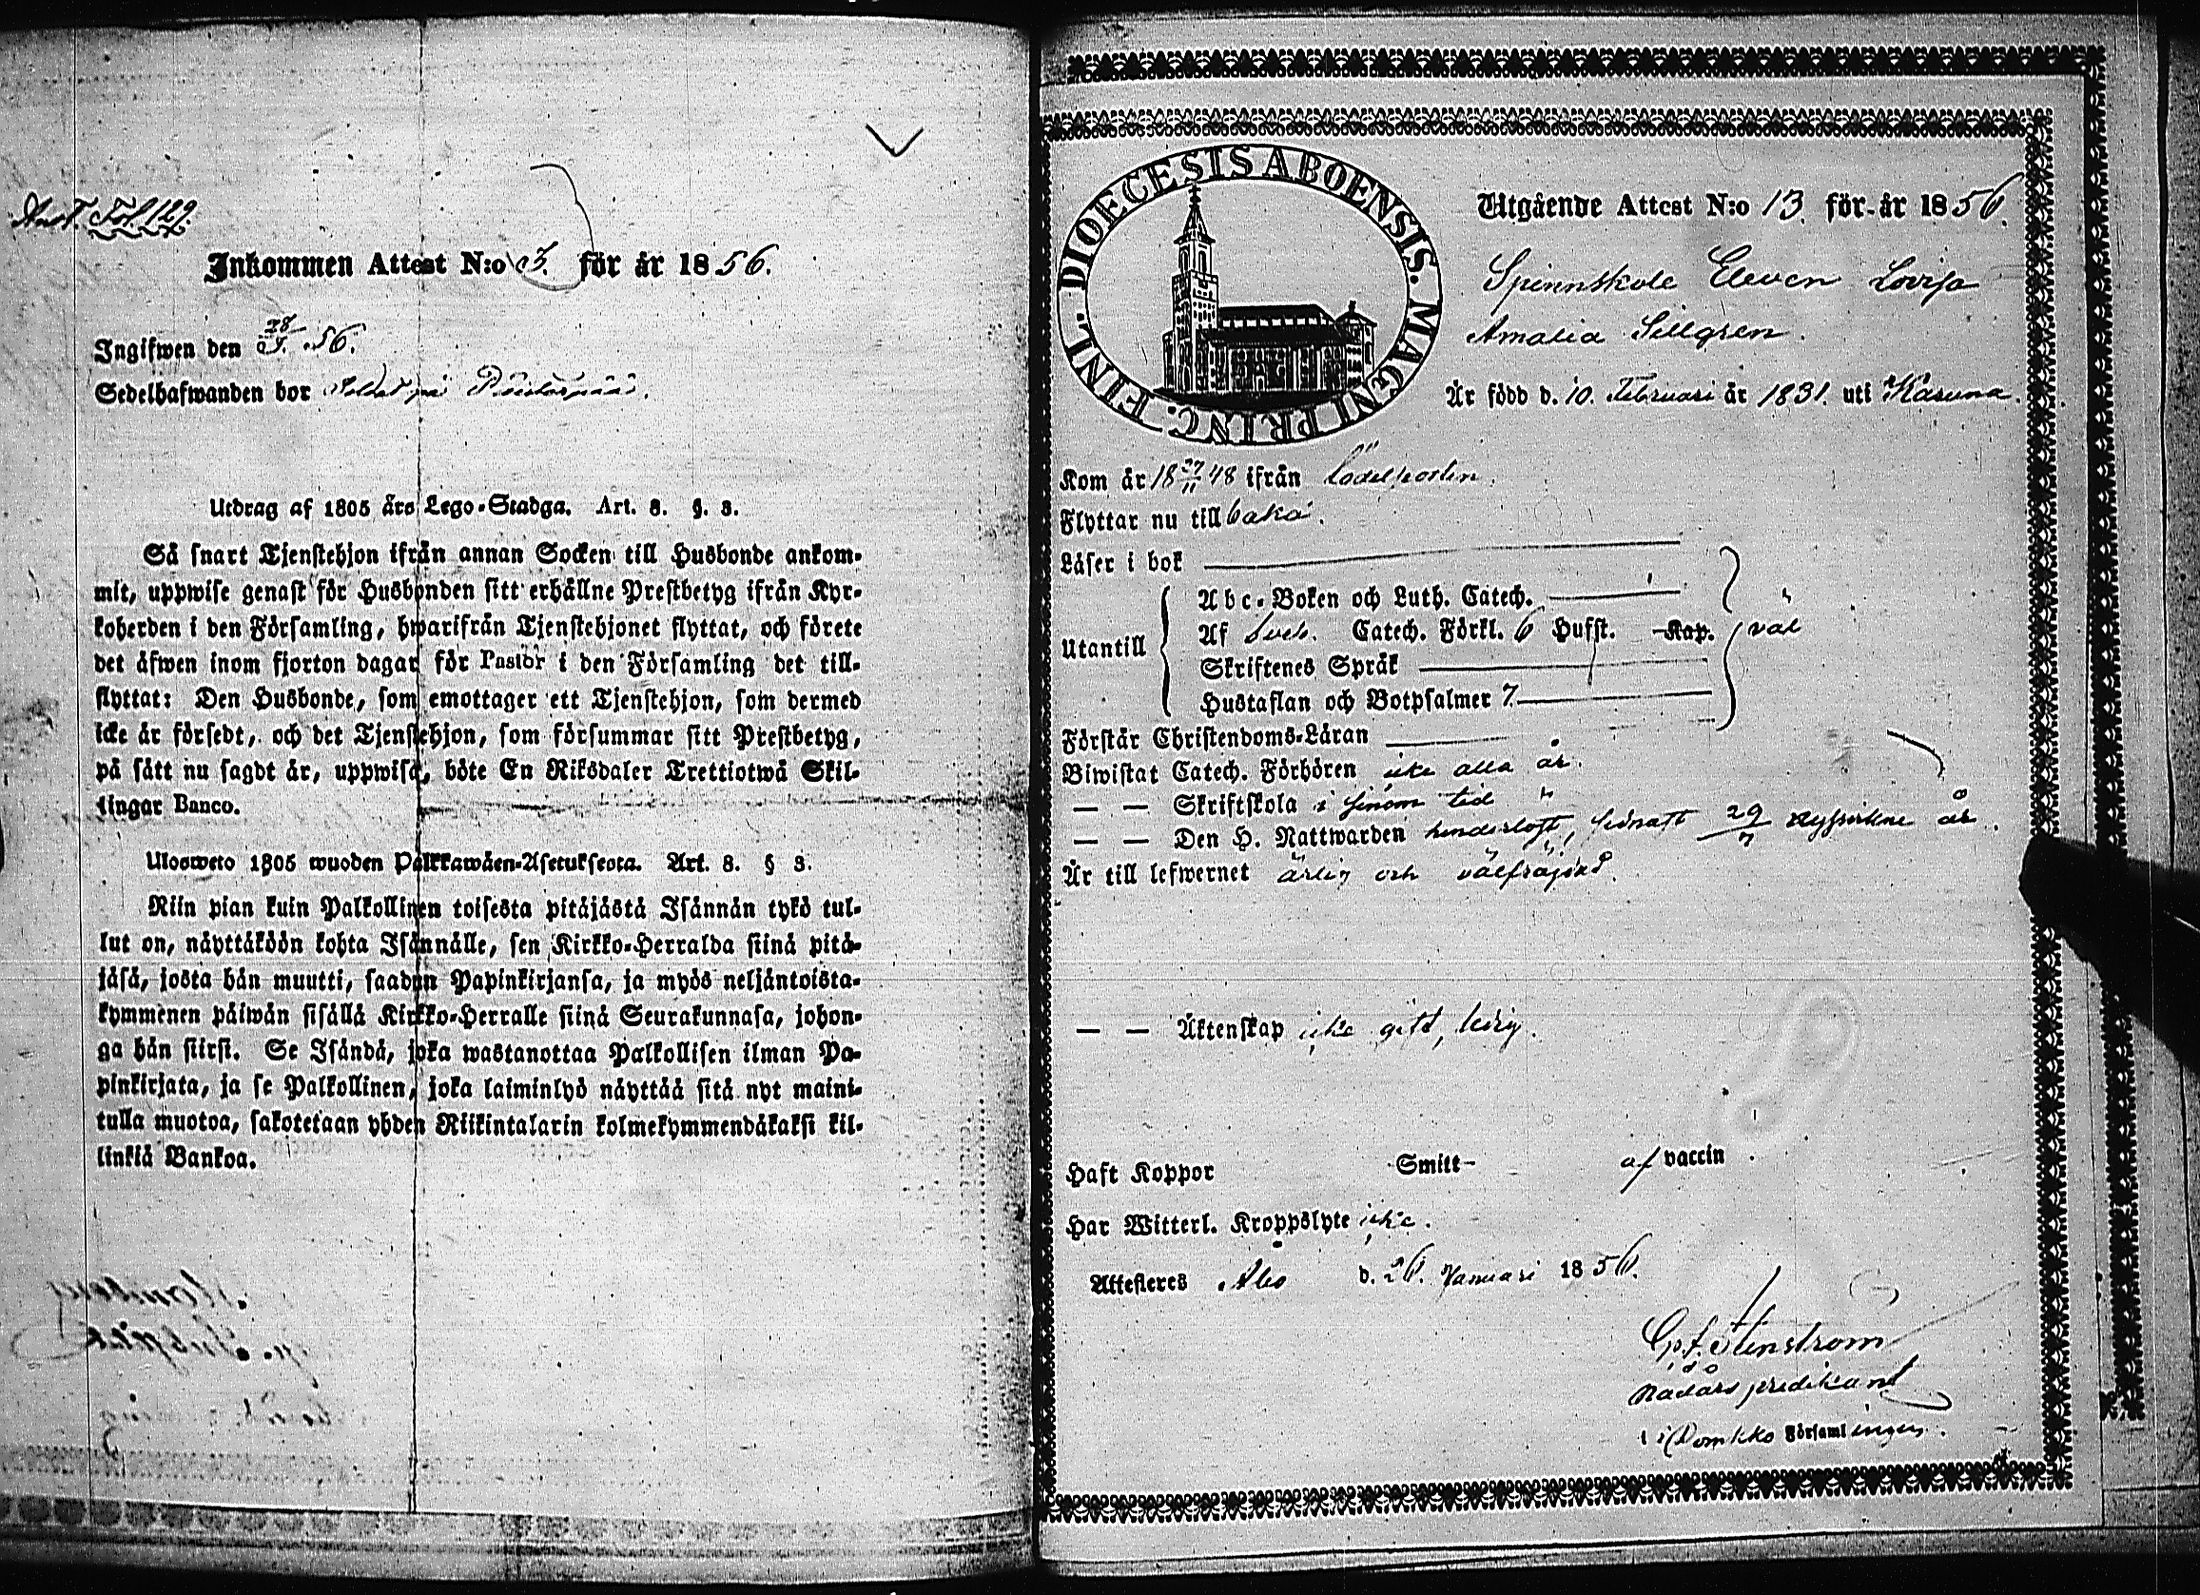 Ant. Fol. 129.
Inkommen Attest N:o 3. för år 1856.
Ingifwen den 28/1. 56.
Sedelhafwanden bor
Utdrag af 1805 års Lego-Stadga. Art. 8. §. 3.
Så snart Tjenstehjon ifrån annan Socken till Husbonde ankom-
mit, uppwise genast för Husbonden sitt erhållne Prestbetyg ifrån Kyr-
koherden i den Församling, hwarifrån Tjenstehjonet flyttat, och förete
det äfwen inom fjorton dagar för Pastor i den Församling det till-
flyttat: Den Husbonde, som emottager ett Tjenstehjon, som dermed
icke är försedt, och det Tjenstehjon, som försummar sitt Prestbetyg,
på sätt nu sagdt är, uppwisa, böte En Riksdaler Trettiotwå Skil-
lingar Banco.
Ulosweto 1805 wuoden Palkkawäen-Asetuksesta. Art. 8. § 3.
Niin pian kuin Palkollinen toisesta pitäjästä Isännän tykö tul-
lut on, näyttäköön kohta Isännälle, sen Kirkko-Herralda siinä pitä-
jäsä, josta hän muutti, saadun Papinkirjansa, ja myös neljäntoista-
kymmenen päiwän sisällä Kirkko-Herralle siinä Seurakunnasa, johon-
ga hän siirsi. Se Isändä, joka wastanottaa Palkollisen ilman Pa-
pinkirjata, ja se Palkollinen, joka laiminlyö näyttää sitä nyt maini-
tulla muotoa, sakotetaan yhden Riikintalarin kolmekymmendäkaksi kil-
linkiä Bankoa.
DIOECESIS ABOENSIS. MAGNI PRINC. FINL.
Utgående Attest N:o 13. för år 1856.
Spinnskole Eleven Lovisa
Amalia Sellgren.
Är född d. 10. Februari år 1831. uti Karuna.
Kom år 18 27/11 48 ifrån
Flyttar nu till baka.
Läser i bok
Utantill
Abc-Boken och Luth. Catech.
Af Sveb. Catech. Förkl. 6 Hufst. Kap. väl
Skriftenes Språk
Hustaflan och Botpsalmer 7.
Förstår Christendoms-Läran
Biwistat Catech. Förhören icke alla år.
— — Skriftskola i sinom tid
— — Den H. Nattwarden hinderlöst, sednast 29/7 sistförflutne år.
Är till lefwernet ärlig och välfräjdad.
— — Äktenskap icke gift, ledig.
Haft Koppor Smitt- af vaccin.
Har Witterl. Kroppslyte icke.
Attesteres Åbo d. 26. Januari 1856.
Stenström
Nådårs predikant
i Domkko Församlingen.